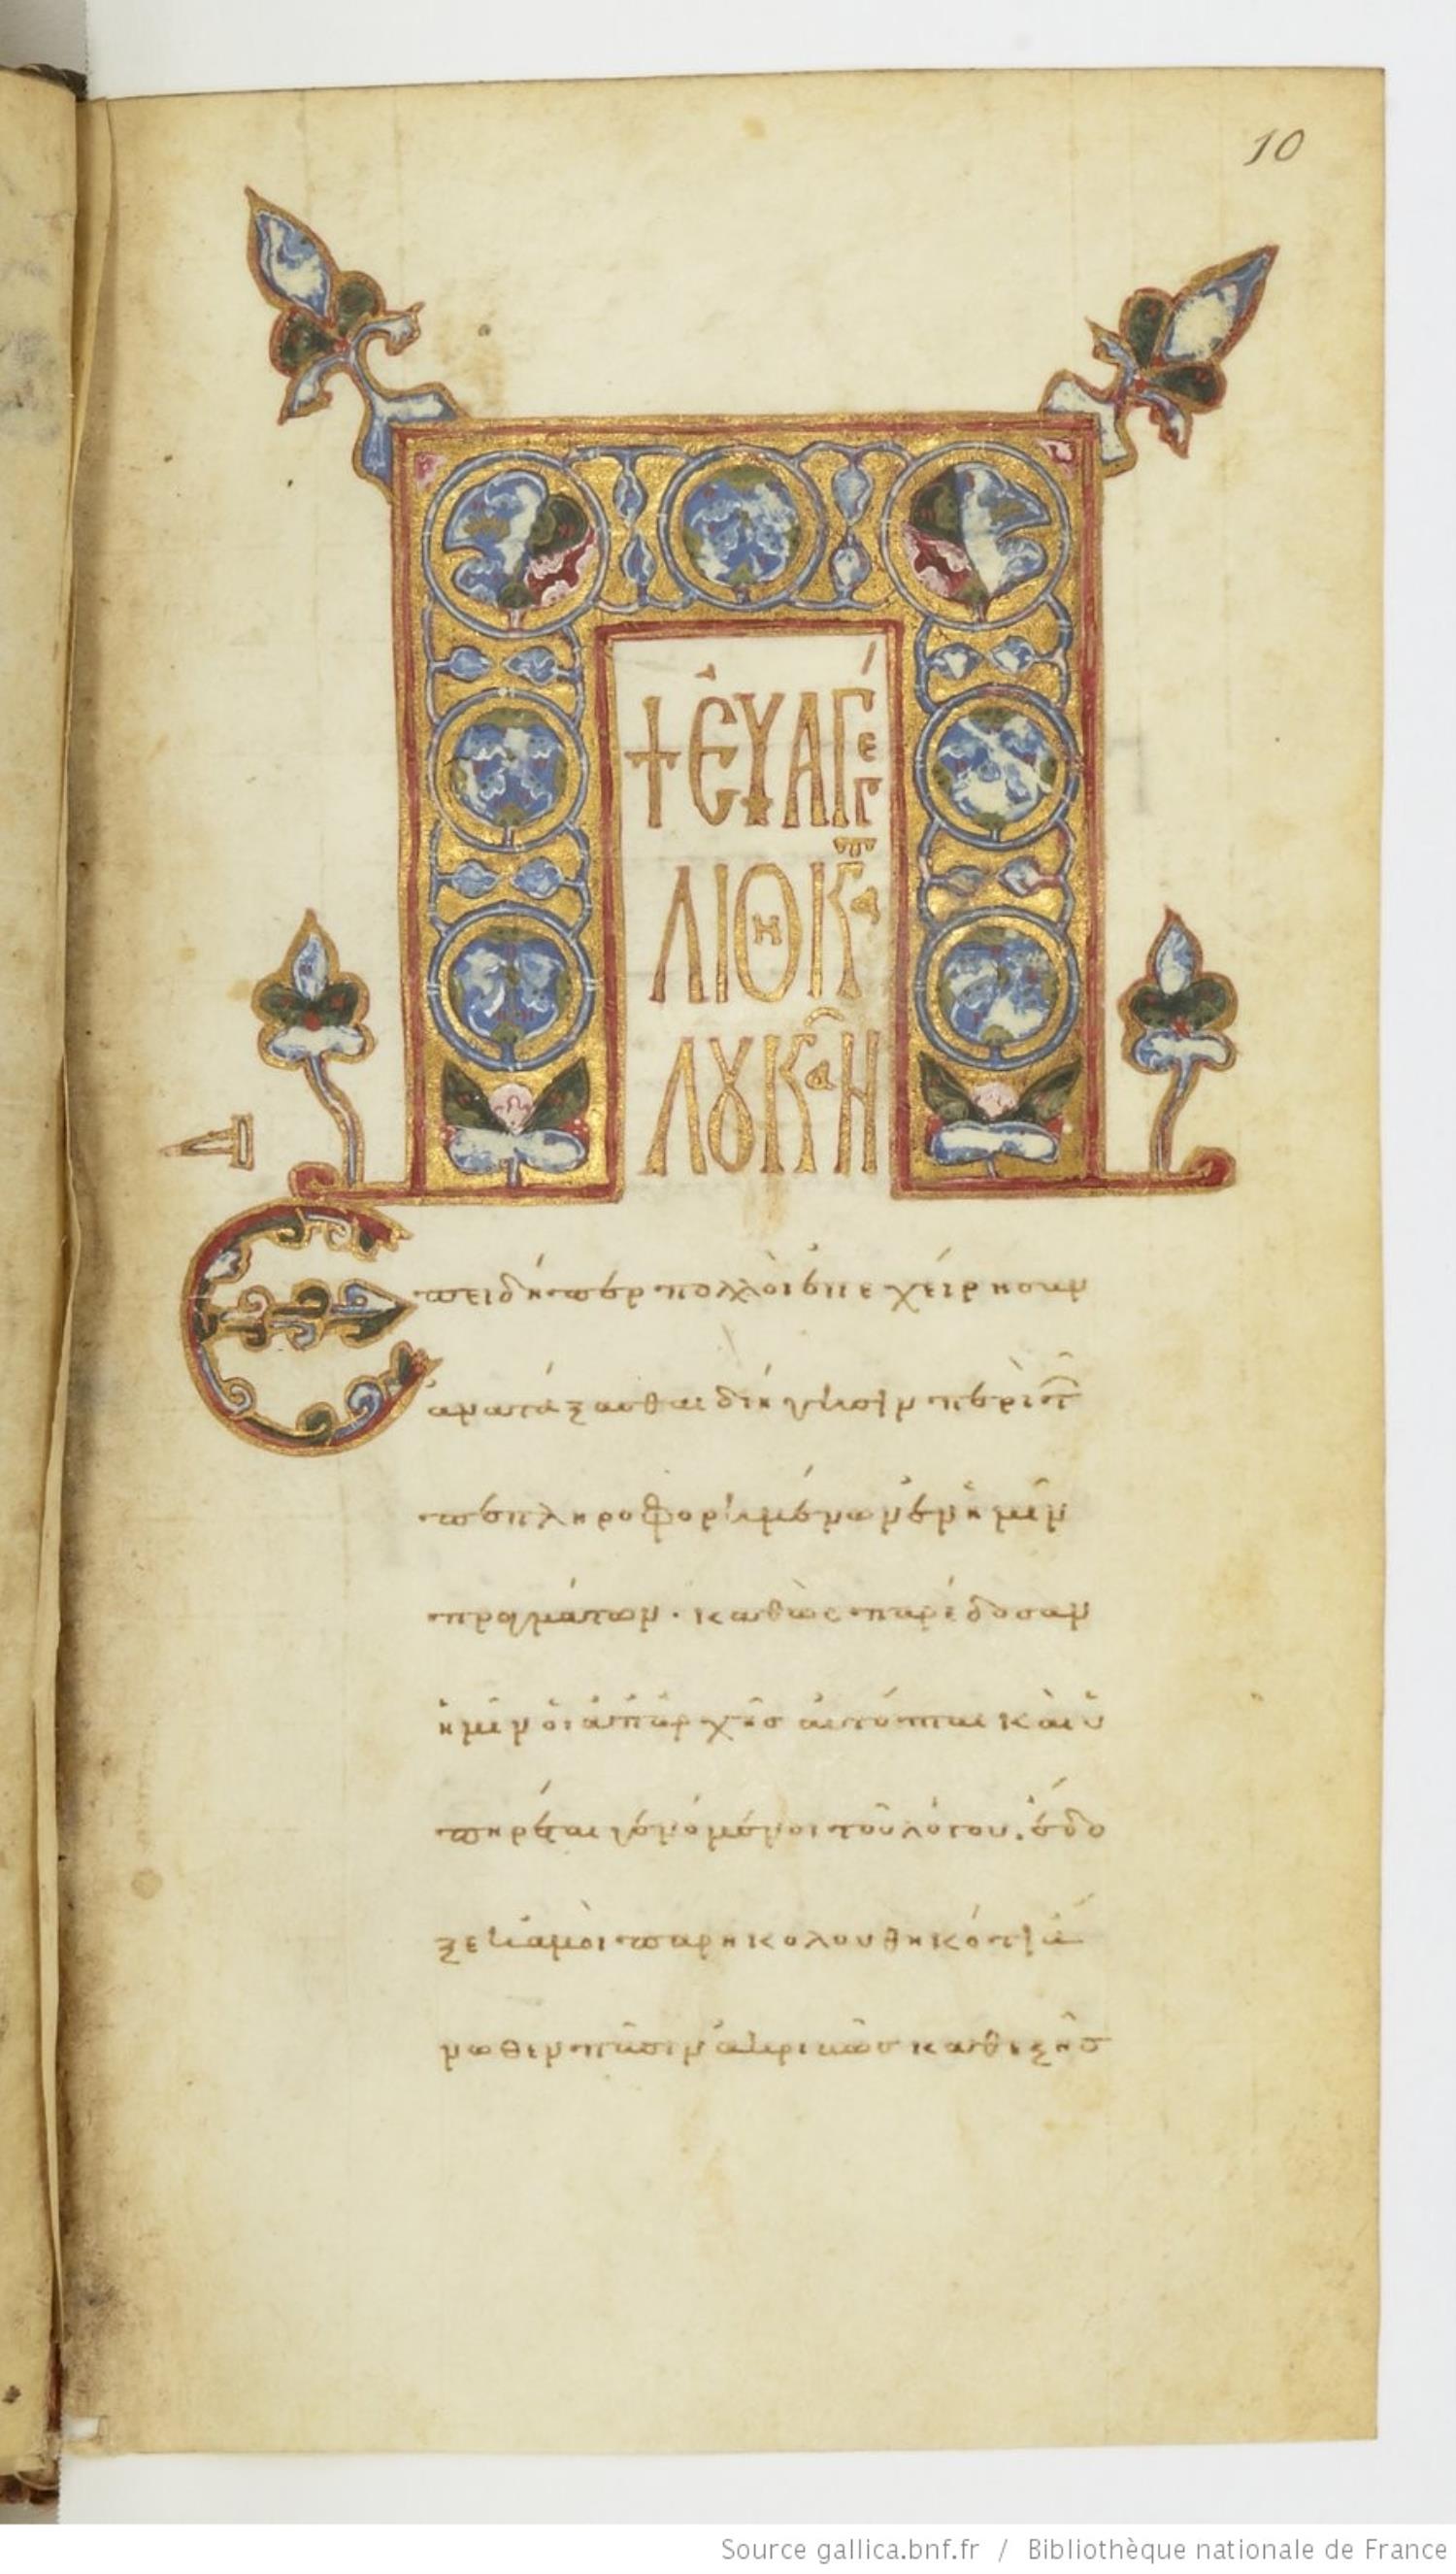 10
+ ΕΥΑΓΓΕ
ΛΙΟΝ Κ̅Α̅Τ̅
ΛΟΥΚΑΝ
Α
Ἐπειδήπερ πολλοὶ ἐπεχείρησαν
ἀνατάξασθαι διήγησιν περὶ τῶν
πεπληροφορημένων ἐν ἡμῖν
πραγμάτων· καθὼς παρέδοσαν
ἡμῖν οἱ ἀπαρχῆς αὐτόπται καὶ ὑ
πηρέται γενόμενοι τοῦ λόγου. ἔδο
ξε κἀμοὶ παρηκολουθηκότι ἄ
νωθεν πᾶσιν ἀκριβῶς καθεξῆς
Source gallica.bnf.fr / Bibliothèque nationale de France